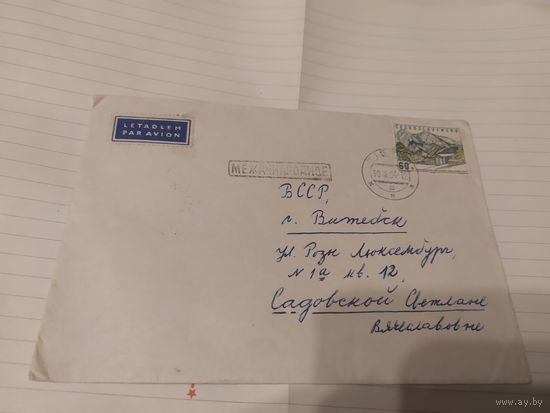 LETADLEM
PAR AVION
ČESKOSLOVENSKO
60
МЕЖДУНАРОДНОЕ
БССР,
г. Витебск
ул. Розы Люксембург,
N 1а кв. 12,
Садовской Светлане
Вячеславовне
www.ay.by